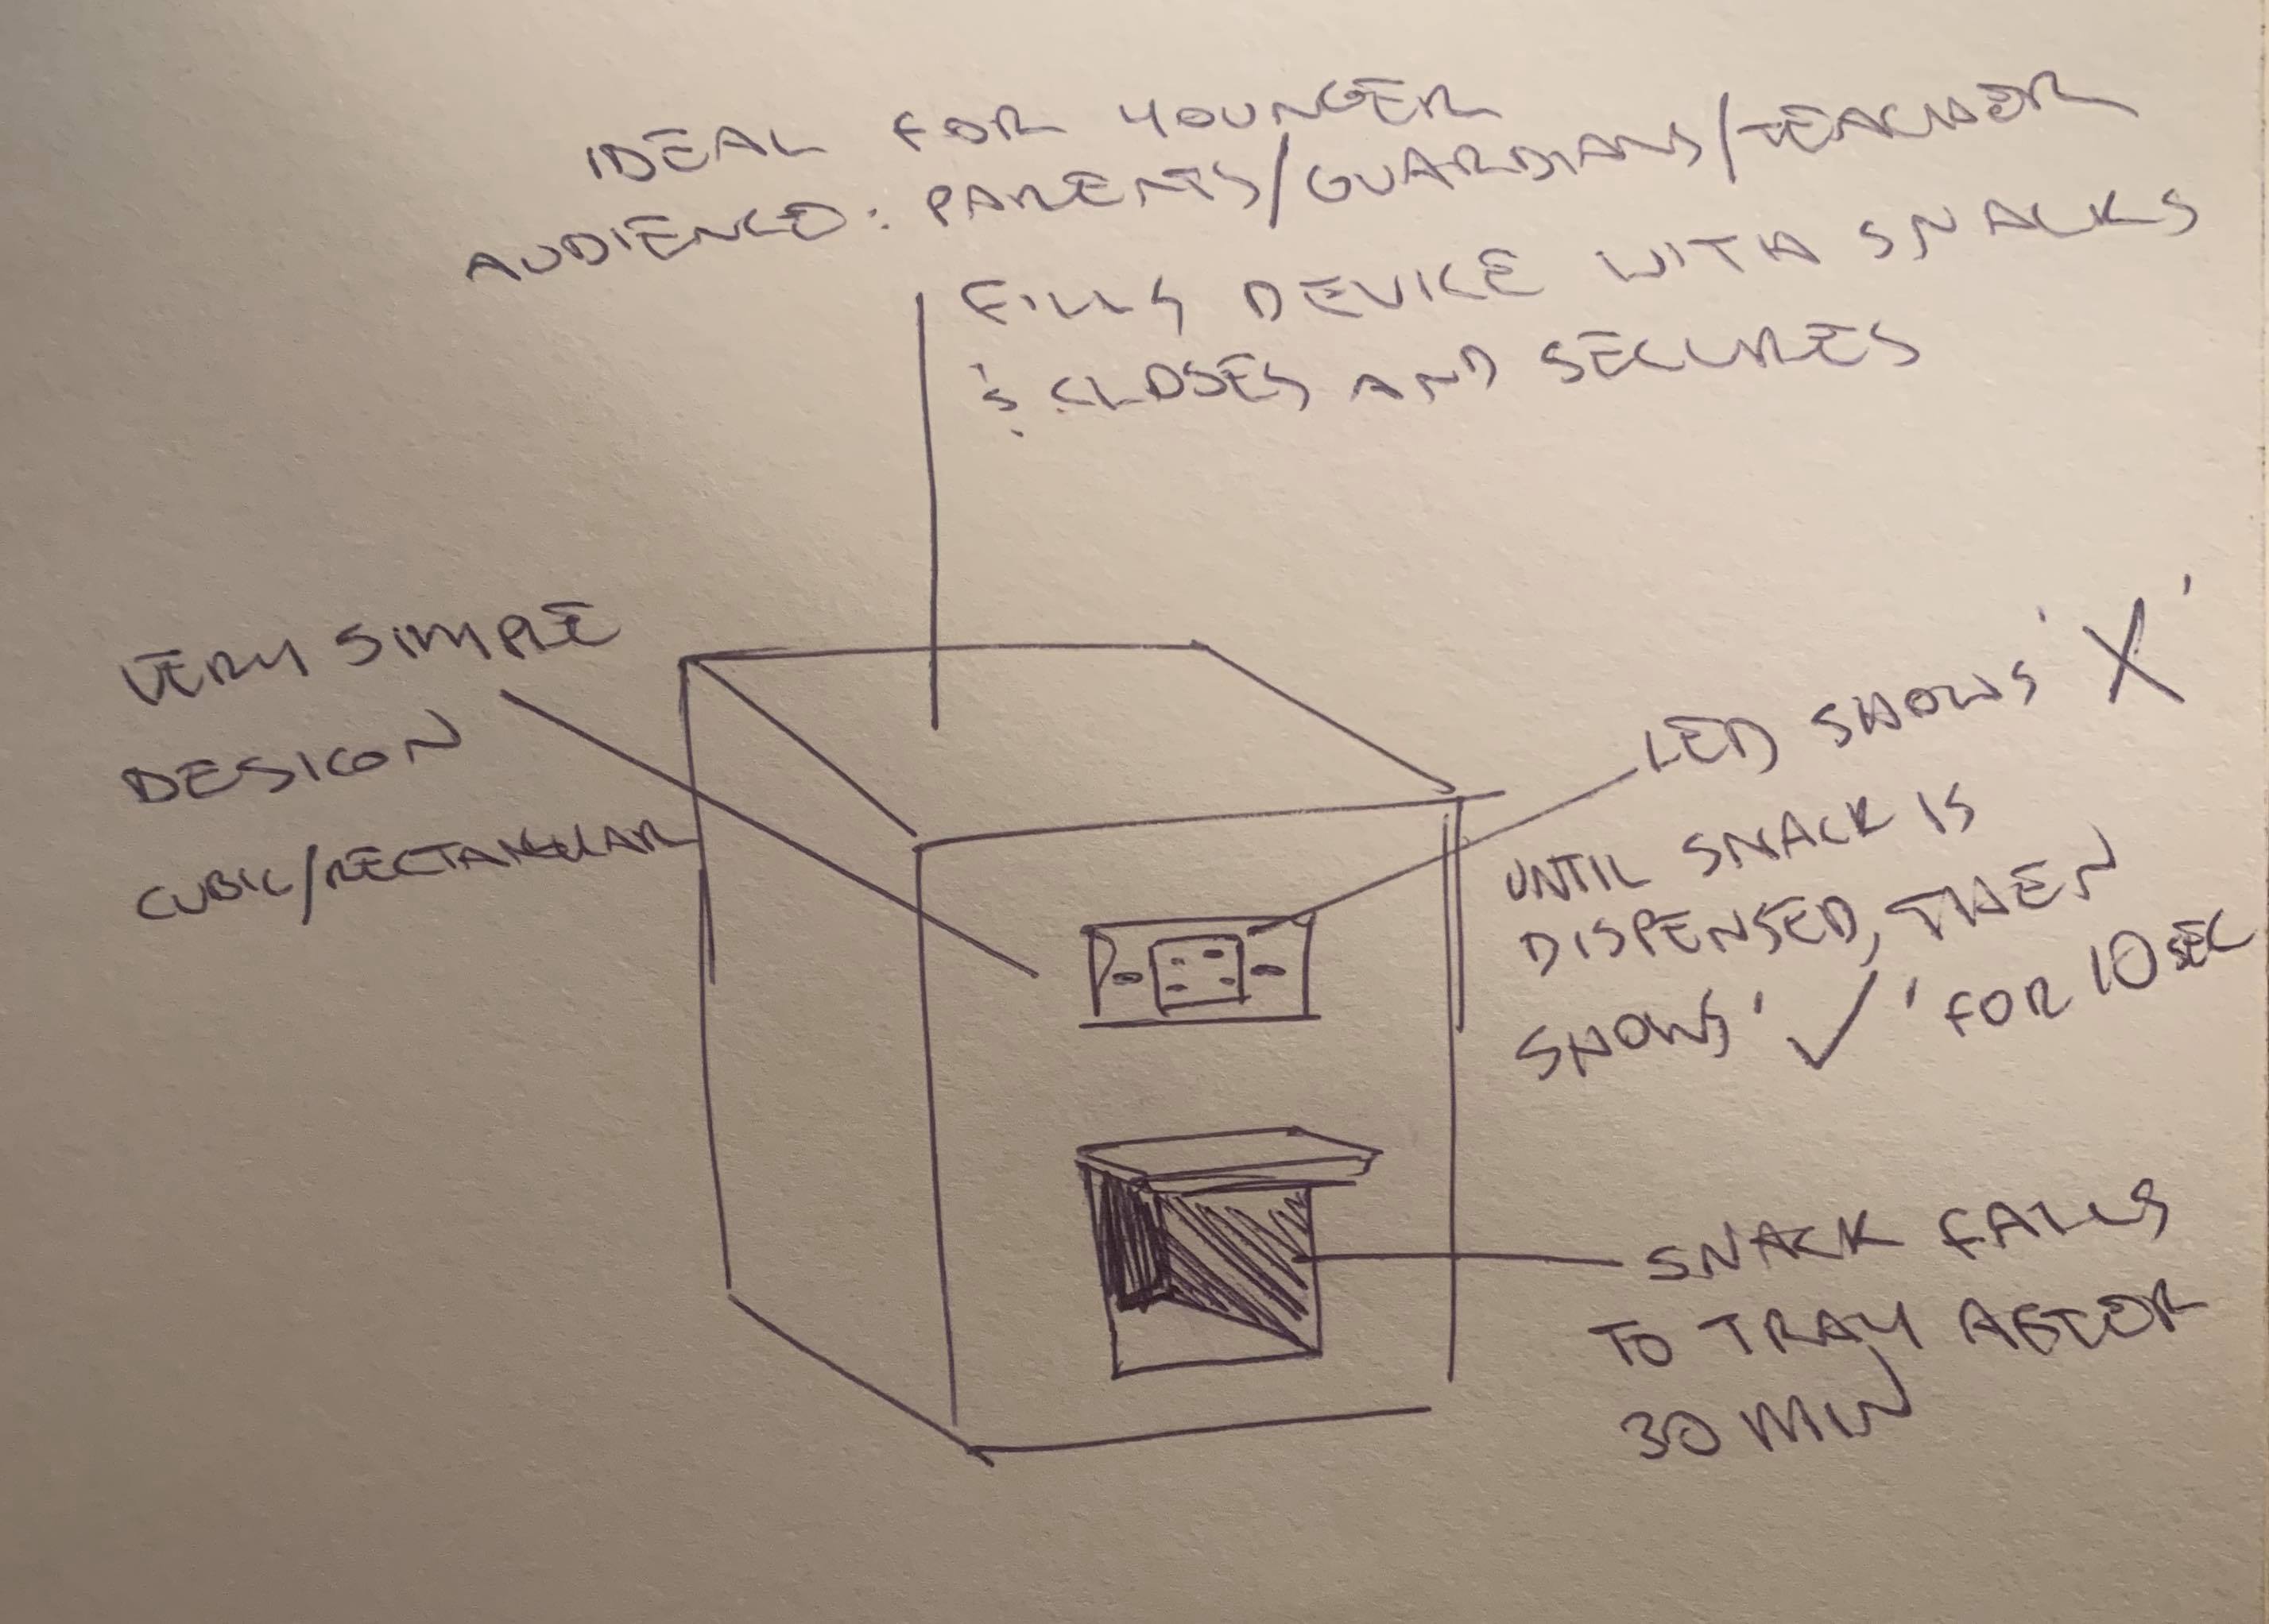 IDEAL FOR YOUNGER
AUDIENCE: PARENTS/GUARDIANS/TEACHER
FILLS DEVICE WITH SNACKS
& CLOSES AND SECURES
VERY SIMPLE
DESIGN
CUBIC/RECTANGULAR
LED SHOWS 'X'
UNTIL SNACK IS
DISPENSED, THEN
SHOWS '✓' FOR 10 SEC
SNACK FALLS
TO TRAY AFTER
30 MIN